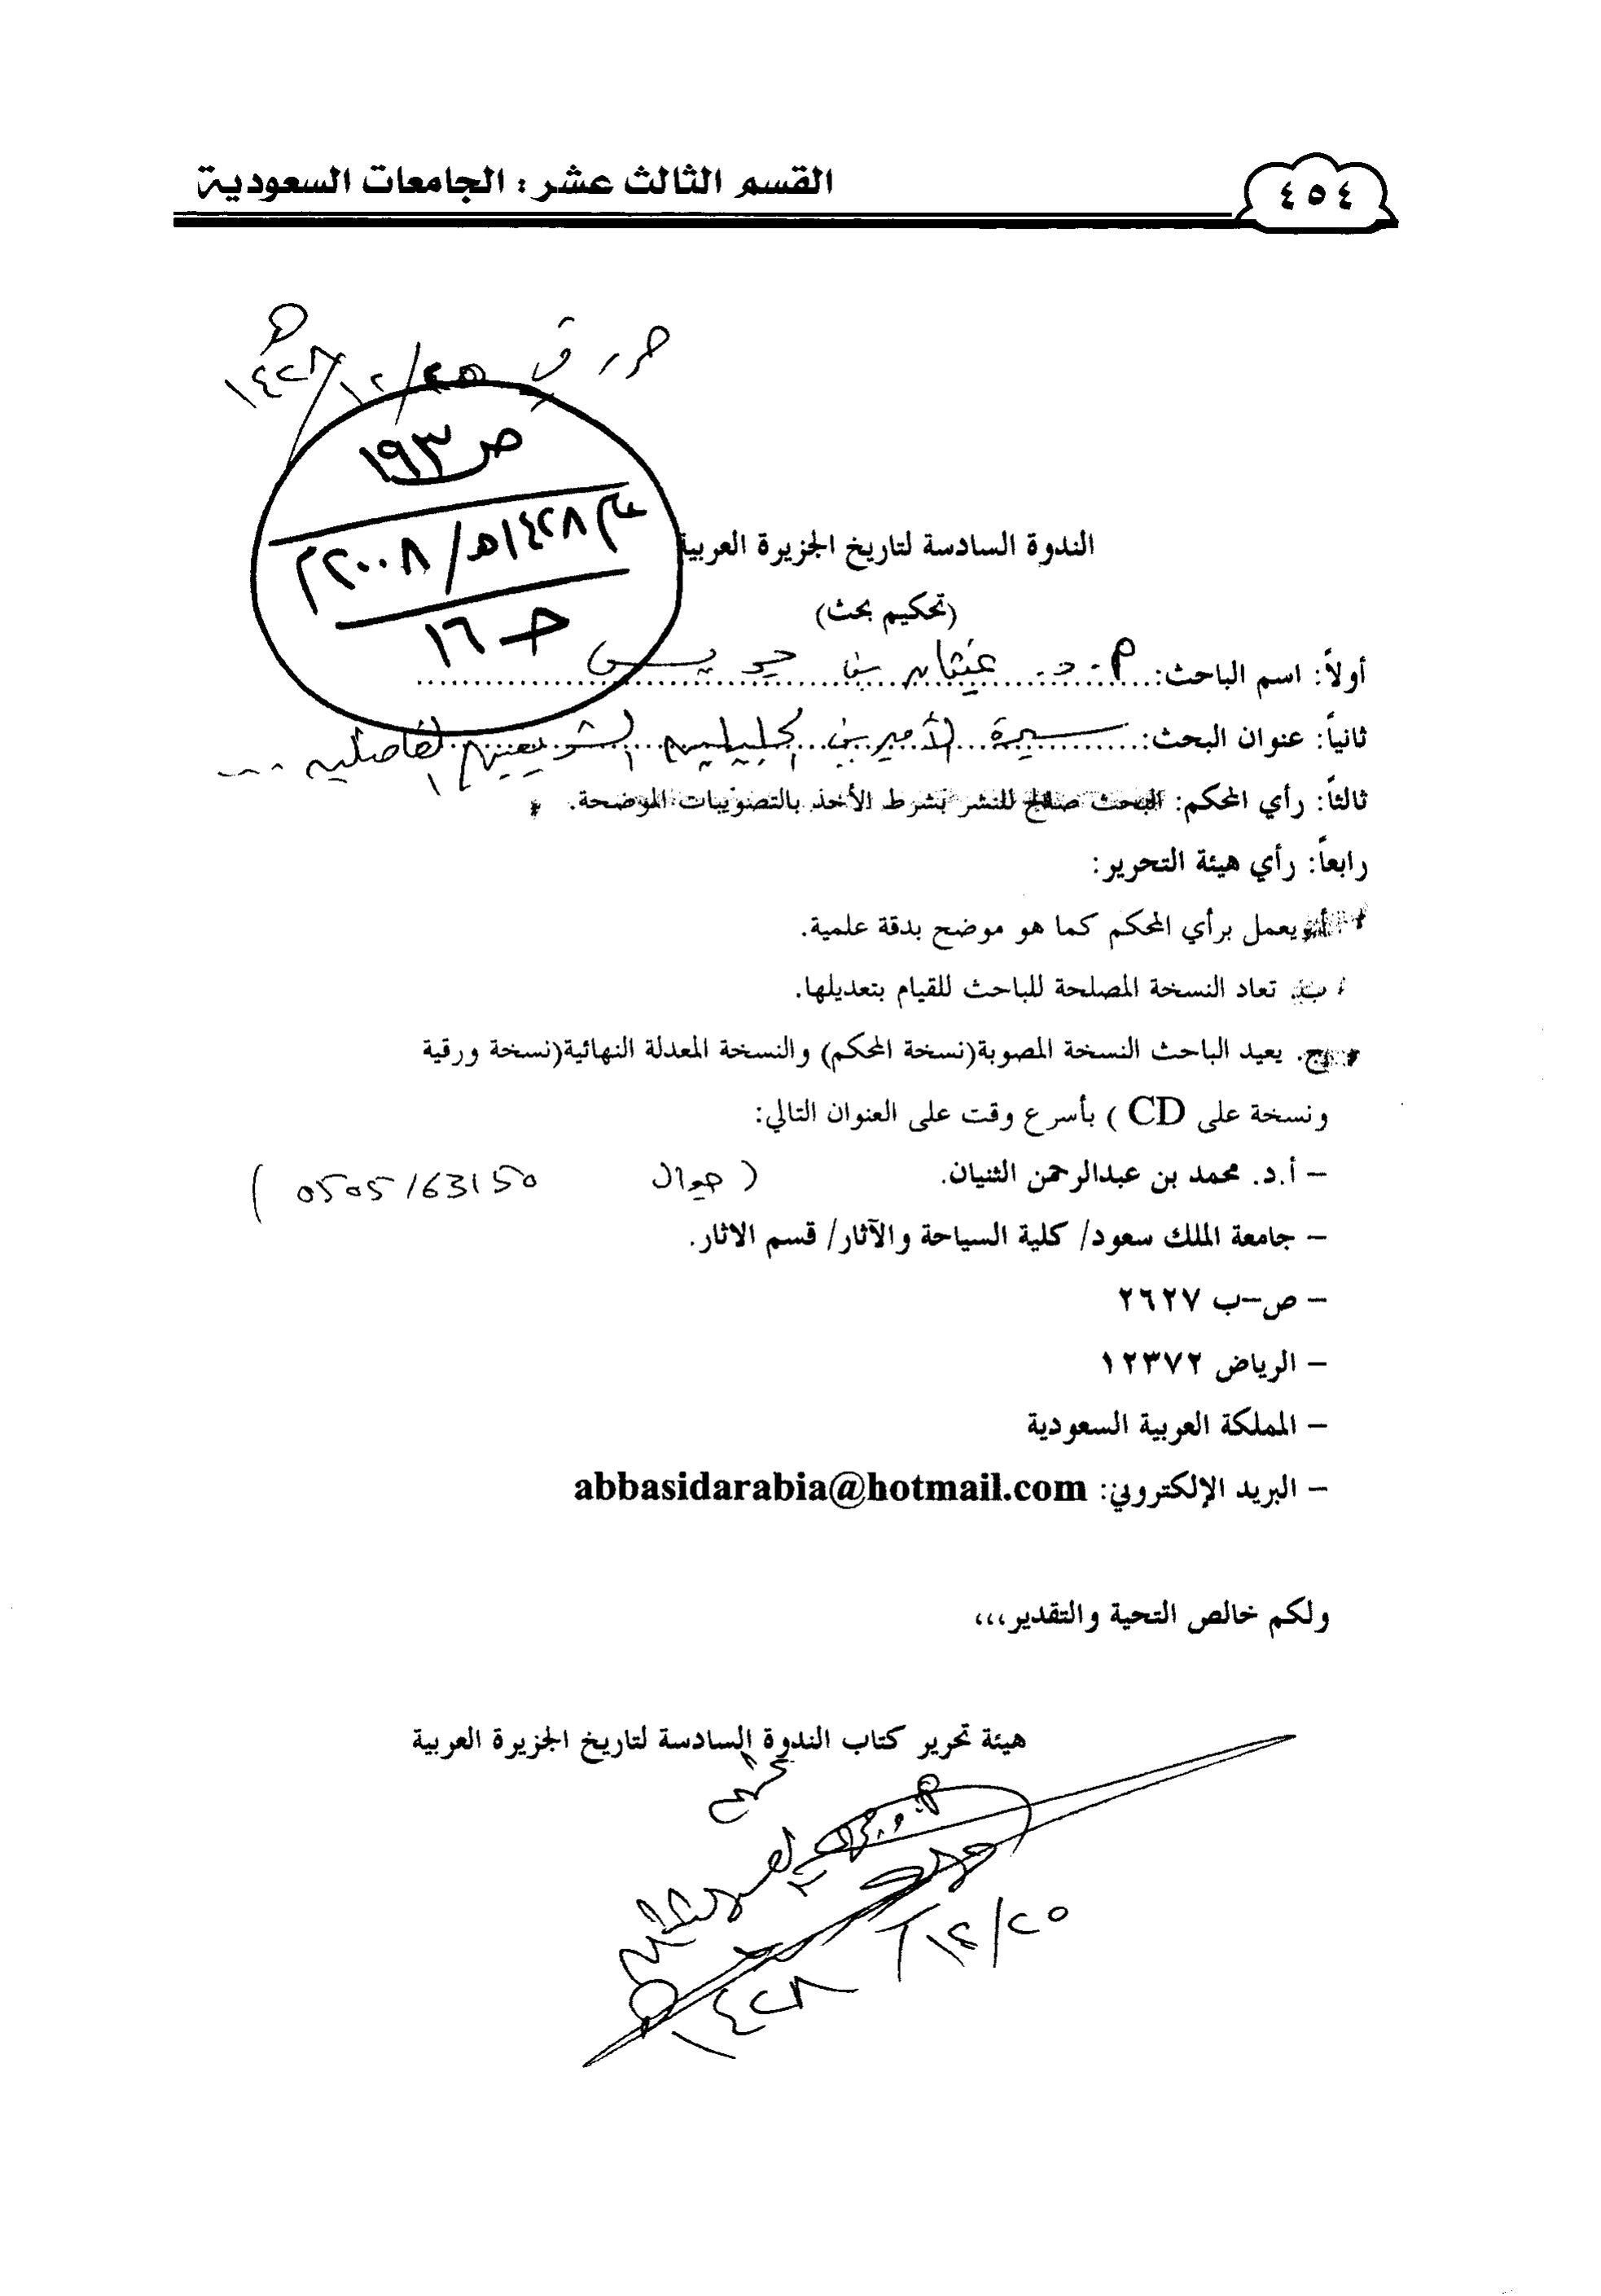 ٤٥٤
القسم الثالث عشر : الجامعات السعودية
١٤٢٨/١٢/٢٥هـ
ص ١٩٣
عام ١٤٢٨هـ/ ٢٠٠٨م
جـ ١٦
الندوة السادسة لتاريخ الجزيرة العربية
(تحكيم بحث)
أولاً: اسم الباحث: أ.د. غيثان بن جريس
ثانياً: عنوان البحث: سيرة الأميرين الجليلين الشريفين الفاضلين ...
ثالثاً: رأي المحكم: البحث صالح للنشر بشرط الأخذ بالتصويبات الموضحة.
رابعاً: رأي هيئة التحرير:
أ. يعمل برأي المحكم كما هو موضح بدقة علمية.
ب. تعاد النسخة المصلحة للباحث للقيام بتعديلها.
ج. يعيد الباحث النسخة المصوبة(نسخة المحكم) والنسخة المعدلة النهائية(نسخة ورقية
ونسخة على CD ) بأسرع وقت على العنوان التالي:
– أ.د. محمد بن عبدالرحمن الثنيان. ( جوال 0505163150 )
– جامعة الملك سعود/ كلية السياحة والآثار/ قسم الاثار.
– ص–ب ٢٦٢٧
– الرياض ١٢٣٧٢
– المملكة العربية السعودية
– البريد الإلكتروني: abbasidarabia@hotmail.com
ولكم خالص التحية والتقدير،،،
هيئة تحرير كتاب الندوة السادسة لتاريخ الجزيرة العربية
١٤٢٨/١٢/٢٥